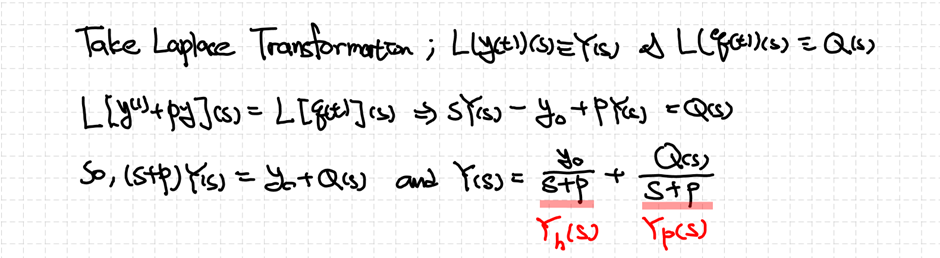 Take Laplace Transformation ; L(y(t))(s)≡Y(s) & L(q(t))(s) ≡ Q(s)
L[y⁽¹⁾+py](s) = L[q(t)](s) ⇒ sY(s) - y₀ + pY(s) = Q(s)
So, (s+p)Y(s) = y₀ + Q(s) and Y(s) = y₀/(s+p) + Q(s)/(s+p)
Yₕ(s) Yₚ(s)